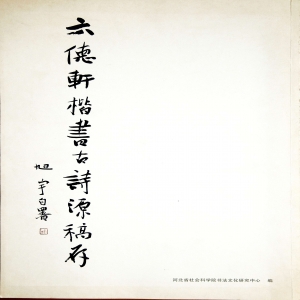 六德軒楷書古詩源稿存
旭宇自署
河北省社会科学院书法文化研究中心